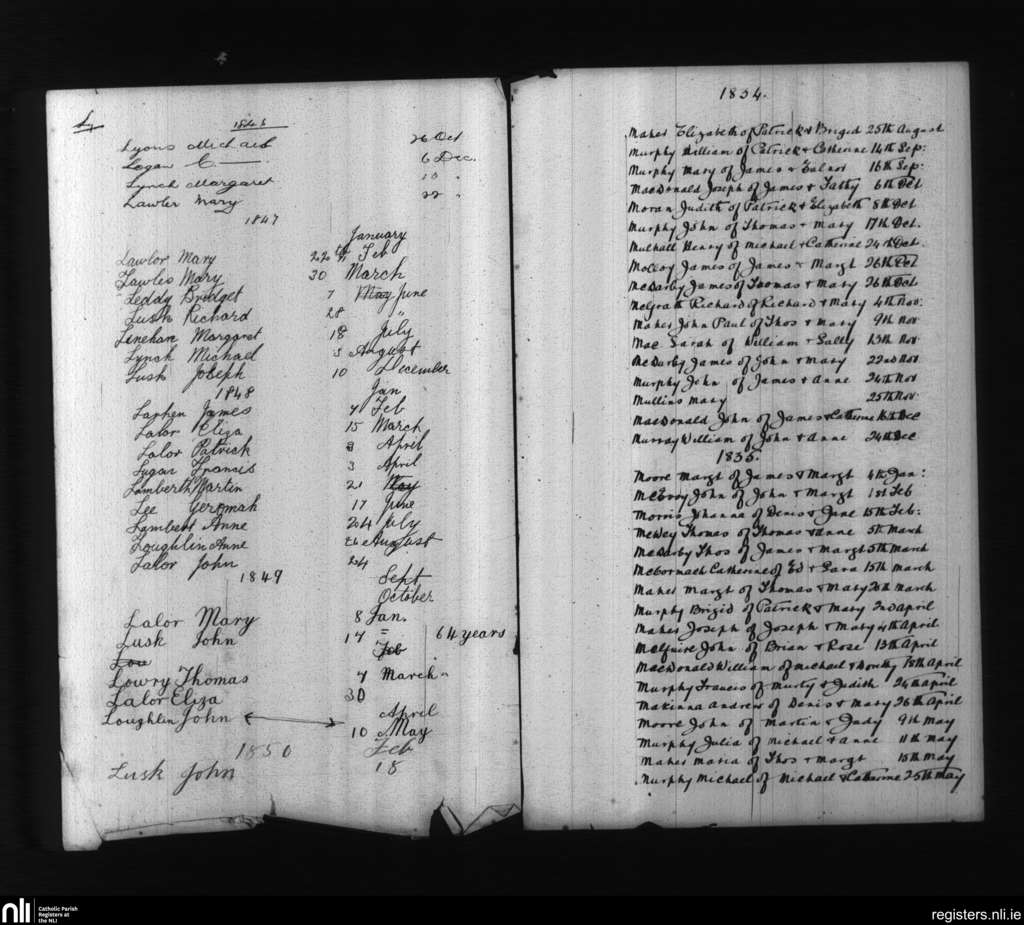 Ly
1846
Lyons Michael 26 Oct
Logan C — 6 Dec.
Lynch Margaret 10 "
Lawler Mary 22 "
1847
January
Lawlor Mary 22th Feb
Lawles Mary 30 March
Leddy Bridget 7 May June
Lusk Richard 28 "
Linehan Margaret 18 July
Lynch Michael 3 August
Lusk Joseph 10 December
1848 Jan
Larhen James 7 Feb
Lalor Eliza 15 March
Lalor Patrick 3 April
Lugar Francis 3 April
Lamberth Martin 21 May
Lee Jeremiah 17 June
Lambert Anne 24 July
Loughlin Anne 26 August
Lalor John 24
1849 Sept
October
Lalor Mary 8 Jan.
Lusk John 17 " 64 years
Low Feb
Lowry Thomas 7 March "
Lalor Eliza 30
Loughlin John April
10 May
1850 Feb
Lusk John 18
1834.
Maher Elizabeth of Patrick & Brigid 25th August
Murphy William of Patrick & Catherine 14th Sep:
Murphy Mary of James & 16th Sep:
MacDonald Joseph of James & Fatty 6th Oct
Moran Judith of Patrick & Elizabeth 8th Oct
Murphy John of Thomas & Mary 17th Oct.
Mulhall Henry of Michael & Catherine 24th Oct.
Molloy James of James & Margt 26th Oct
McDarby James of Thomas & Mary 26th Oct
McGrath Richard of Richard & Mary 4th Nov:
Maher John Paul of Thos & Mary 9th Nov
Mac Sarah of William & Sally 13th Nov
McDarby James of John & Mary 22nd Nov
Murphy John of James & Anne 24th Nov
Mullins Mary 25th Nov
MacDonald John of James & Catherine 16th Dec
Murray William of John & Anne 24th Dec
1835.
Moore Margt of James & Margt 4th Jan:
McEvoy John of John & Margt 1st Feb
Morris Johanna of Denis & Jane 15th Feb:
McWey Thomas of Thomas & Anne 5th March
McDarby Thos of James & Margt 5th March
McCormack Catherine of Ed & Sara 15th March
Maher Margt of Thomas & Mary 20th March
Murphy Brigid of Patrick & Mary 2nd April
Maher Joseph of Joseph & Mary 4th April
McGuire John of Brian & Rose 13th April
MacDonald William of Michael & Dorothy 18th April
Murphy Francis of Murty & Judith 24th April
MaKinna Andrew of Denis & Mary 26th April
Moore John of Martin & Judy 9th May
Murphy Julia of Michael & Anne 11th May
Maher Maria of Thos & Margt 15th May
Murphy Michael of Michael & Catherine 25th May
nli Catholic Parish
Registers at
the NLI
registers.nli.ie